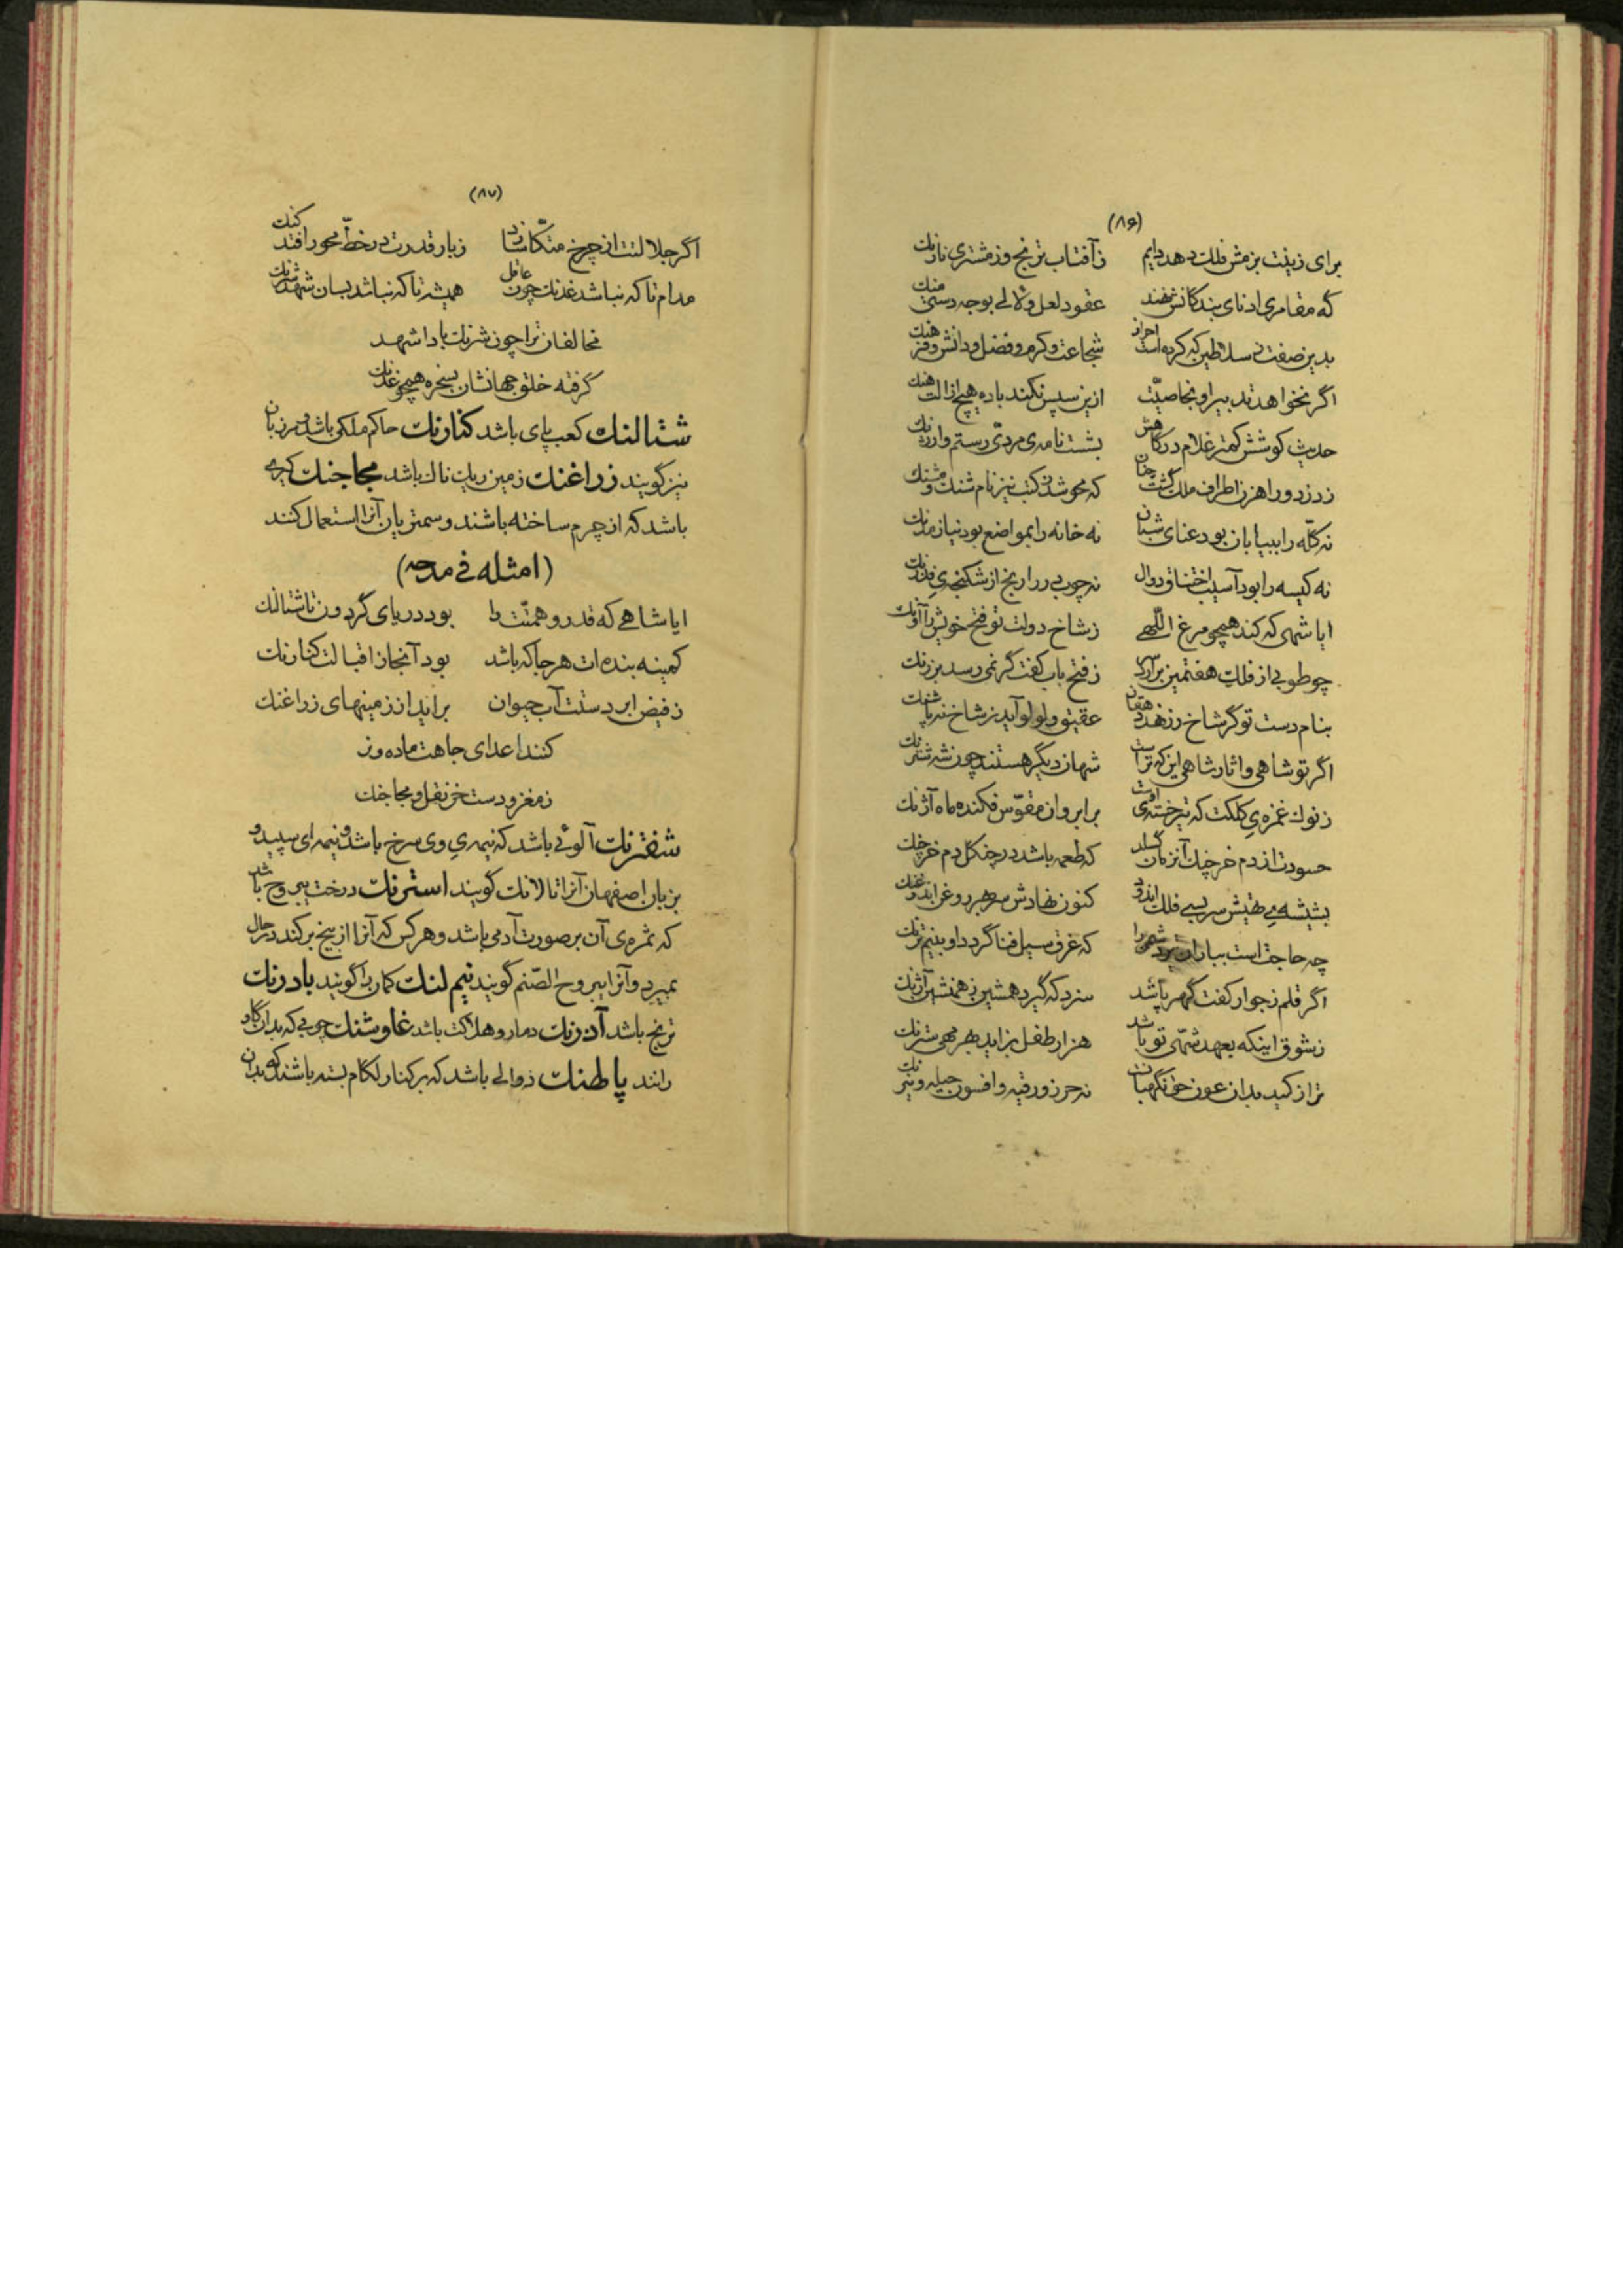 (۸۶)
برای زینت بزمش فلک دهد دایم زآفتاب ترنج وز مشتری نارنگ
گه مقامری ادنای بندگانش نهند عقود لعل ولآلی بوجه دستی منک
بدین صفت ز سلاطین که کرده است احراز شجاعت وکرم وفضل ودانش وفر هنگ
اگر نخواهد تدبیر او بخاصیّت ازین سپس نکند باده هیچ ازالت هنگ
حدیث کوشش کمتر غلام درگاهش بشست نامه‌ی مردیّ رستم وارژنگ
ز دزد وراهزن اطراف ملک گشت چنان که محو شد ز کتب نیز نام شنگ ومشنگ
نه گلّه را ببیابان بود عنای شبان نه خانه را بمواضع بود نیاز مدنگ
نه کیسه را بود آسیب اختناق دوال نه چوب در را رنج از شکنجه‌ی فدرنگ
ایا شهی که کند همچو مرغ اللّهی زشاخ دولت تو فتح خویش را آونگ
چو طوبی از فلک هفتمین برآرد زفتح باب کفت گر نمی رسد بزرنگ
بنام دست تو گر شاخ رز نهد دهقان عقیق ولولو آید ز شاخ نه پاشنگ
اگر تو شاهی واثار شاهی این که تراست شهان دیگر هستند چون شه شترنگ
زنوک غمزه‌ی کلکت که تیر خسته‌ی اوست برابروان مقوّس فکنده ماه آژنگ
حسودت از دم خرچنگ آنزمان گسلد که طعمه باشد در چنگل دم خرچنگ
بشیشه‌ی طپش سر بسی فلک اندود کنون نهادش سر بر روغن اندودغنگ
چه حاجت است بباران شهر را که غرق سیل فنا گردد او بنیم ترنگ
اگر قلم زجوار کفت گهر پاشد سزد که گیرد همشین ز همنشین آژنگ
زشوق اینکه بعهد شهیّ تو باشد هزار طفل بزاید بهر مهی شترنگ
ترا ز کید بدان عون حق نگهبان نه حرز ورقیه وافسون وحیله ونیرنگ
(۸۷)
اگر جلالتت از چرخ متّکا سازد زبار قدرت در خطّ محور افتد کنک
مدام تا که نباشد غدنگ چون عاقل همیشه تا که نباشد بسان شهد شرنگ
مخالفان ترا چون شرنگ بادا شهد
گرفته خلق جهانشان بسخره همچو غدنگ
شتالنگ کعب پای باشد کنارنگ حاکم ملکی باشد ومرزبان
نیز گویند زراغنگ زمین ریگ ناک باشد مجاجنگ کیری
باشد که از چرم ساخته باشند وسمتریان آنرا استعمال کنند
(امثله فی مدحه)
ایا شاهی که قدر وهمّتت را بود دریای گردون تا شتالنگ
کمینه بنده ات هر جا که باشد بود آنجا ز اقبالت کنارنگ
زفیض ابر دستت آب حیوان برآید از زمینهای زراغنگ
کنند اعدای جاهت ماده ونر
ز مغز ودست خر نقل ومجاجنگ
شفترنگ آلوئی باشد که نیمه‌ی وی سرخ باشد ونیمه‌ای سپید و
بزبان اصفهان آنرا تالانک گویند استرنگ درخت یبروح باشد
که ثمره‌ی آن بر صورت آدمی باشد وهر کس که آنرا از بیخ برکند در حال
بمیرد وآنرا یبروح الصّنم گویند نیم لنگ کمان را گویند بادرنگ
ترنج باشد آدرنگ دمار وهلاکت باشد غاوشنگ چوبی که بدان گاو
رانند پاطنگ زوالی باشد که بر کنار لگام بسته باشند که بدان